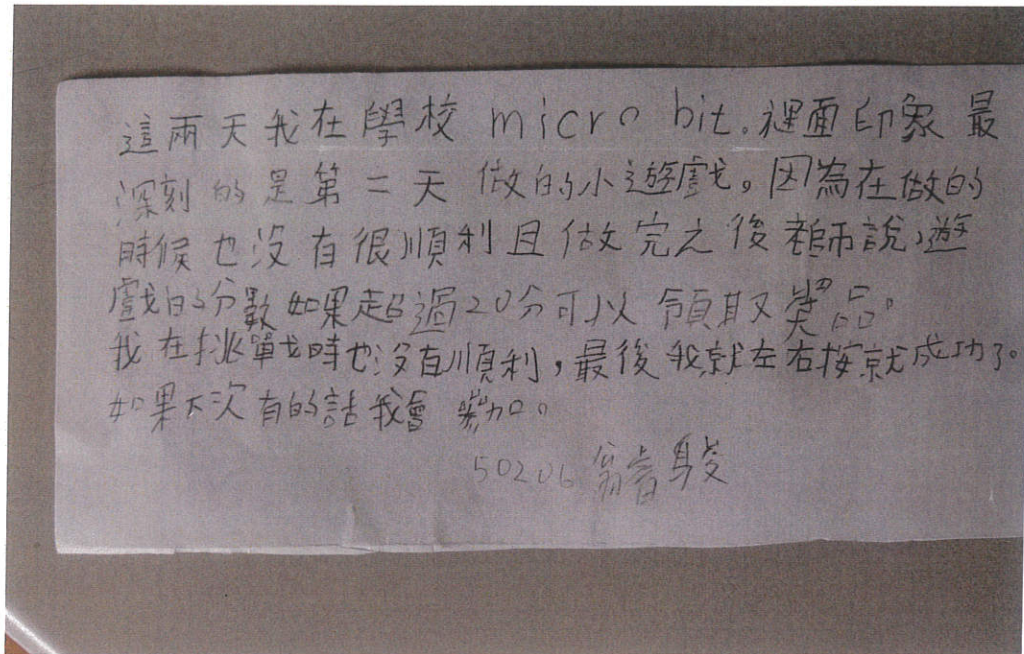 這兩天我在學校 micro bit。裡面印象最
深刻的是第二天做的小遊戲。因為在做的
時候也沒有很順利且做完之後老師說,遊
戲的分數如果超過20分可以領取獎品。
我在挑戰時也沒有順利,最後我就左右按就成功了。
如果下次有的話我會參加。
50206 翁睿駿